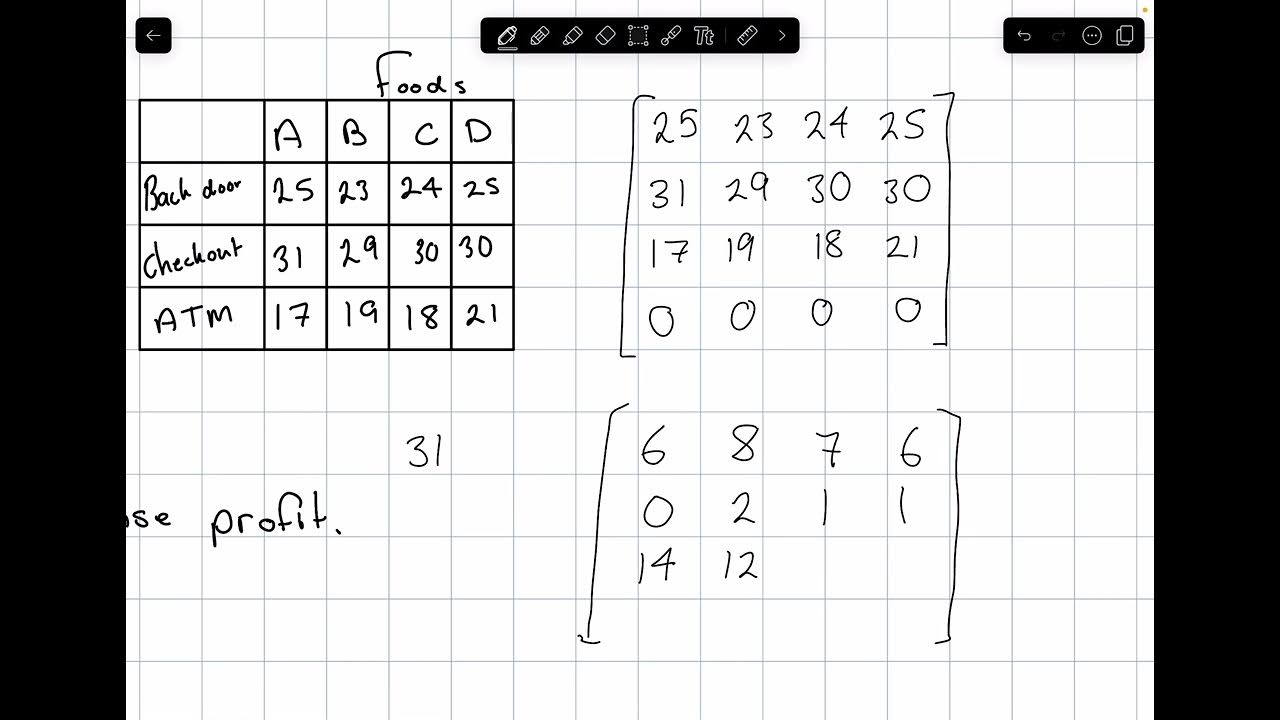 Foods
A B C D
Back door 25 23 24 25
Checkout 31 29 30 30
ATM 17 19 18 21
25 23 24 25
31 29 30 30
17 19 18 21
0 0 0 0
31
profit.
6 8 7 6
0 2 1 1
14 12
Tt